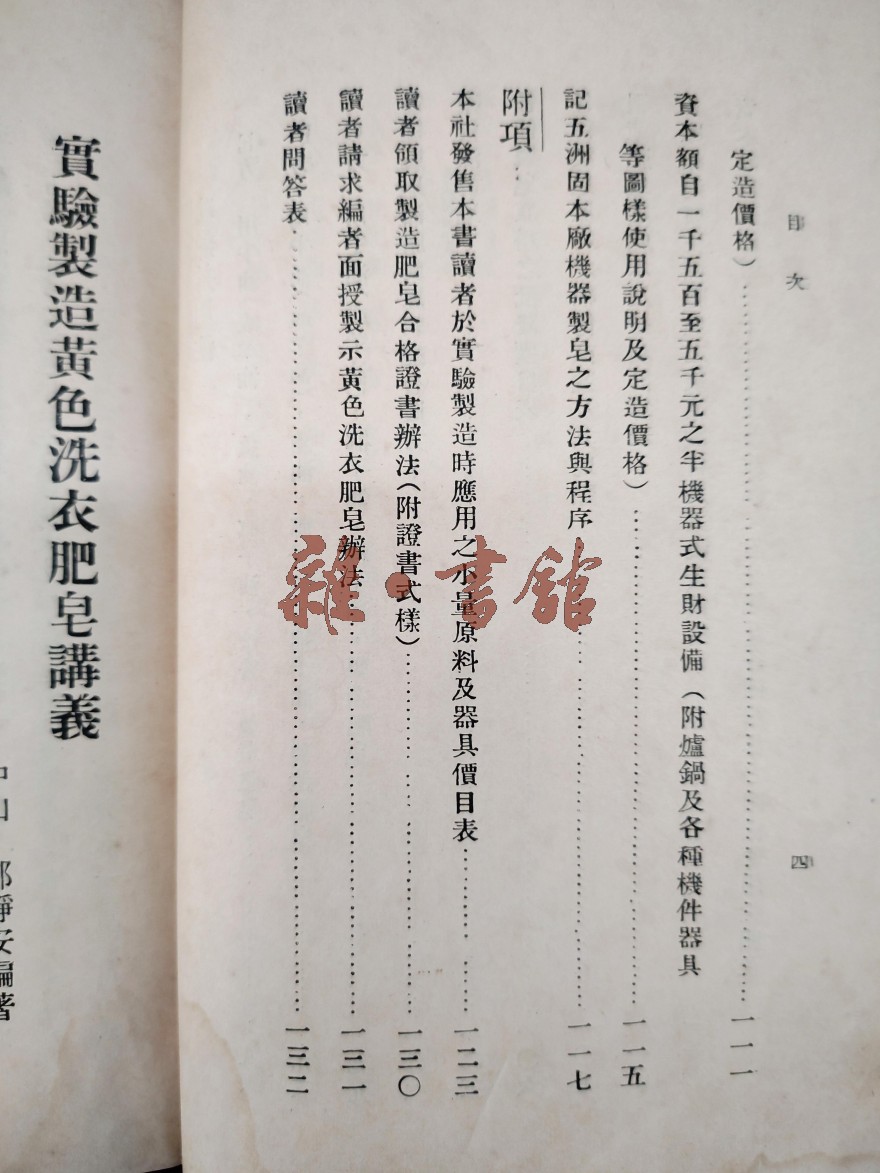 目次
四
定造價格）……一一一
資本額自一千五百至五千元之半機器式生財設備（附爐鍋及各種機件器具
等圖樣使用說明及定造價格）……一一五
記五洲固本廠機器製皂之方法與程序……一一七
附項：
本社發售本書讀者於實驗製造時應用之小量原料及器具價目表……一二三
讀者領取製造肥皂合格證書辦法（附證書式樣）……一三〇
讀者請求編者面授製示黃色洗衣肥皂辦法……一三一
讀者問答表……一三二
實驗製造黃色洗衣肥皂講義
靜安編著
雜·書館